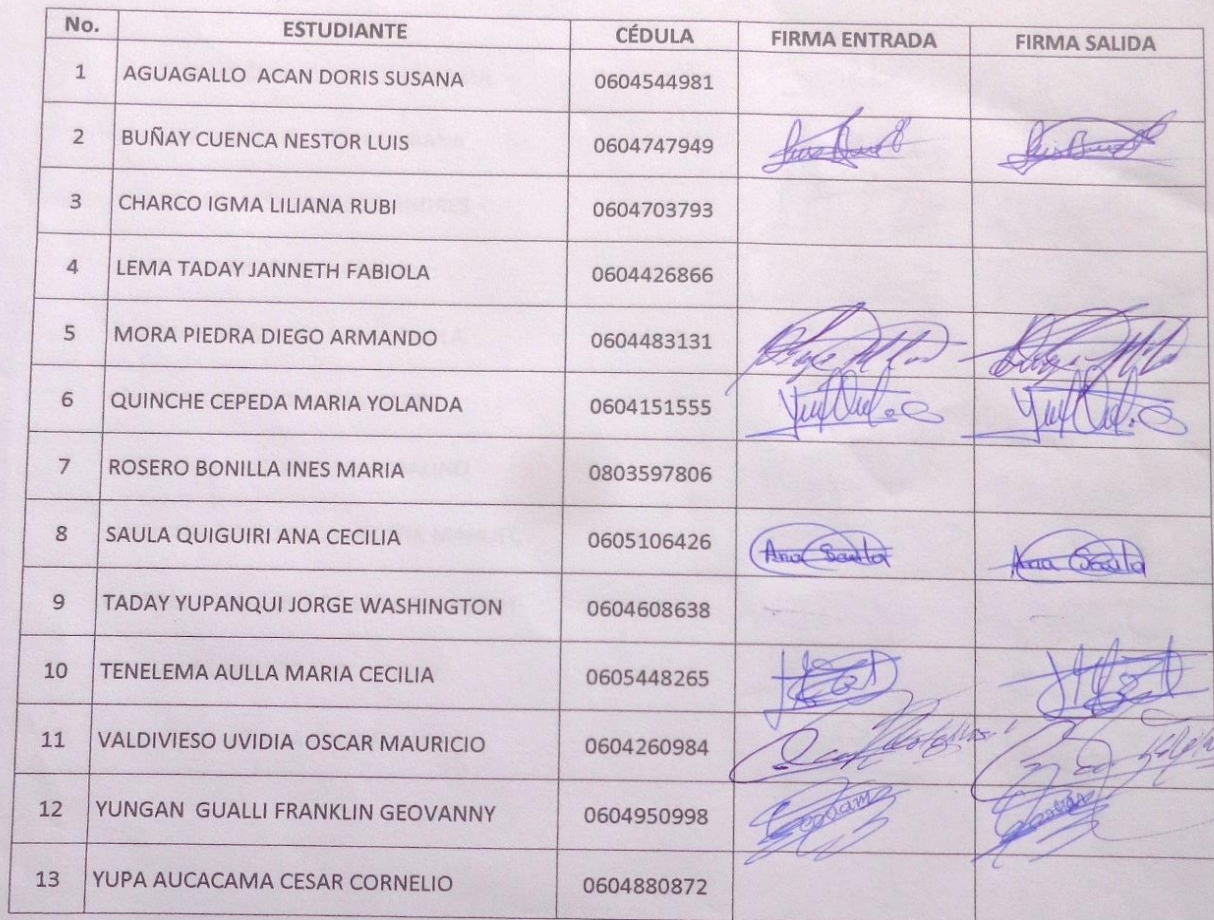 No. ESTUDIANTE CÉDULA FIRMA ENTRADA FIRMA SALIDA
1 AGUAGALLO ACAN DORIS SUSANA 0604544981
2 BUÑAY CUENCA NESTOR LUIS 0604747949
3 CHARCO IGMA LILIANA RUBI 0604703793
4 LEMA TADAY JANNETH FABIOLA 0604426866
5 MORA PIEDRA DIEGO ARMANDO 0604483131
6 QUINCHE CEPEDA MARIA YOLANDA 0604151555
7 ROSERO BONILLA INES MARIA 0803597806
8 SAULA QUIGUIRI ANA CECILIA 0605106426 Ana Saula Ana Saula
9 TADAY YUPANQUI JORGE WASHINGTON 0604608638
10 TENELEMA AULLA MARIA CECILIA 0605448265
11 VALDIVIESO UVIDIA OSCAR MAURICIO 0604260984
12 YUNGAN GUALLI FRANKLIN GEOVANNY 0604950998
13 YUPA AUCACAMA CESAR CORNELIO 0604880872